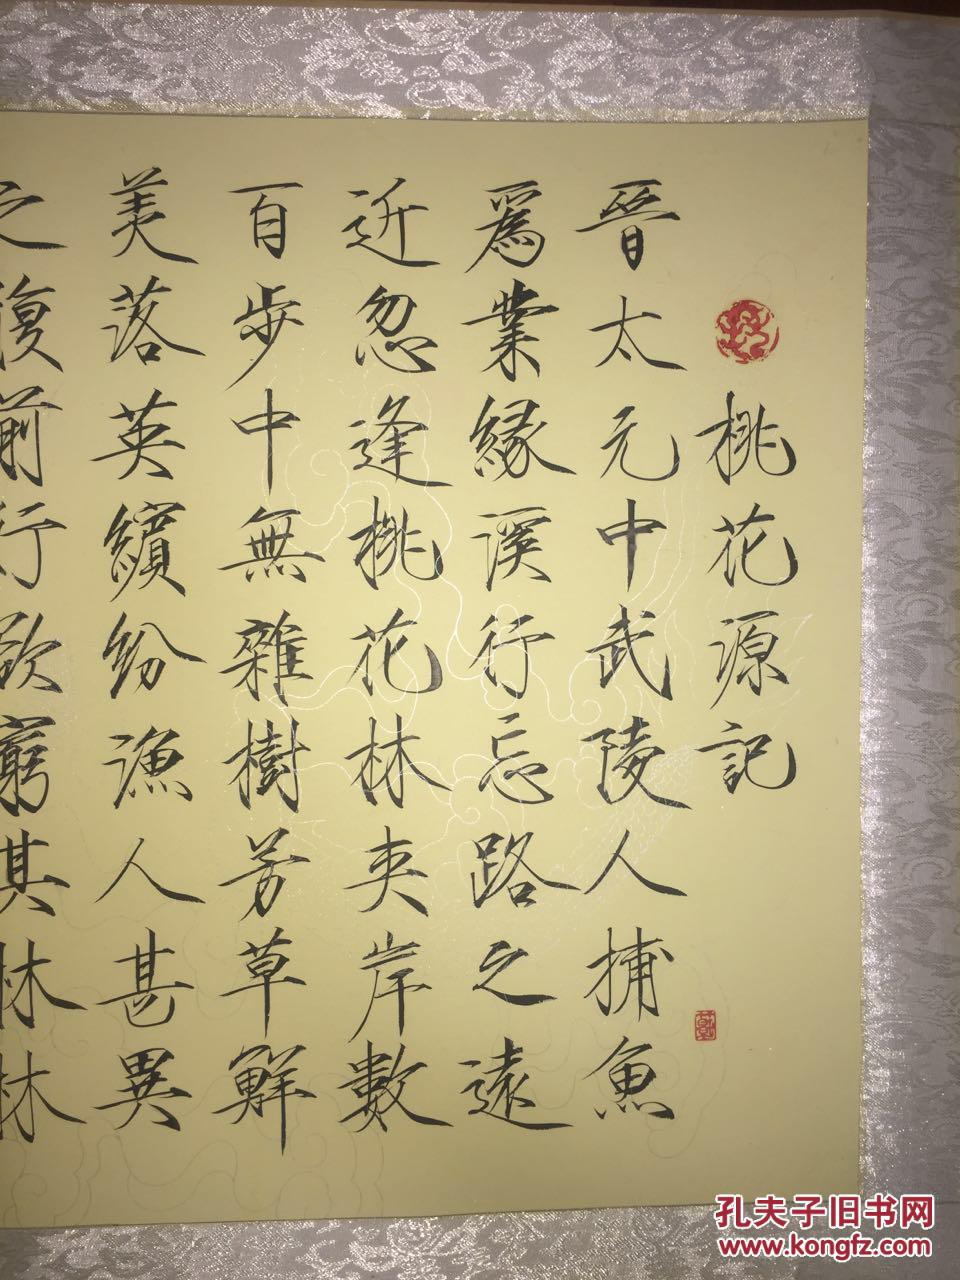 桃花源記
晉太元中武陵人捕魚
爲業緣溪行忘路之遠
近忽逢桃花林夾岸數
百步中無雜樹芳草鮮
美落英繽紛漁人甚異
之復前行欲窮其林林
孔夫子旧书网
www.kongfz.com